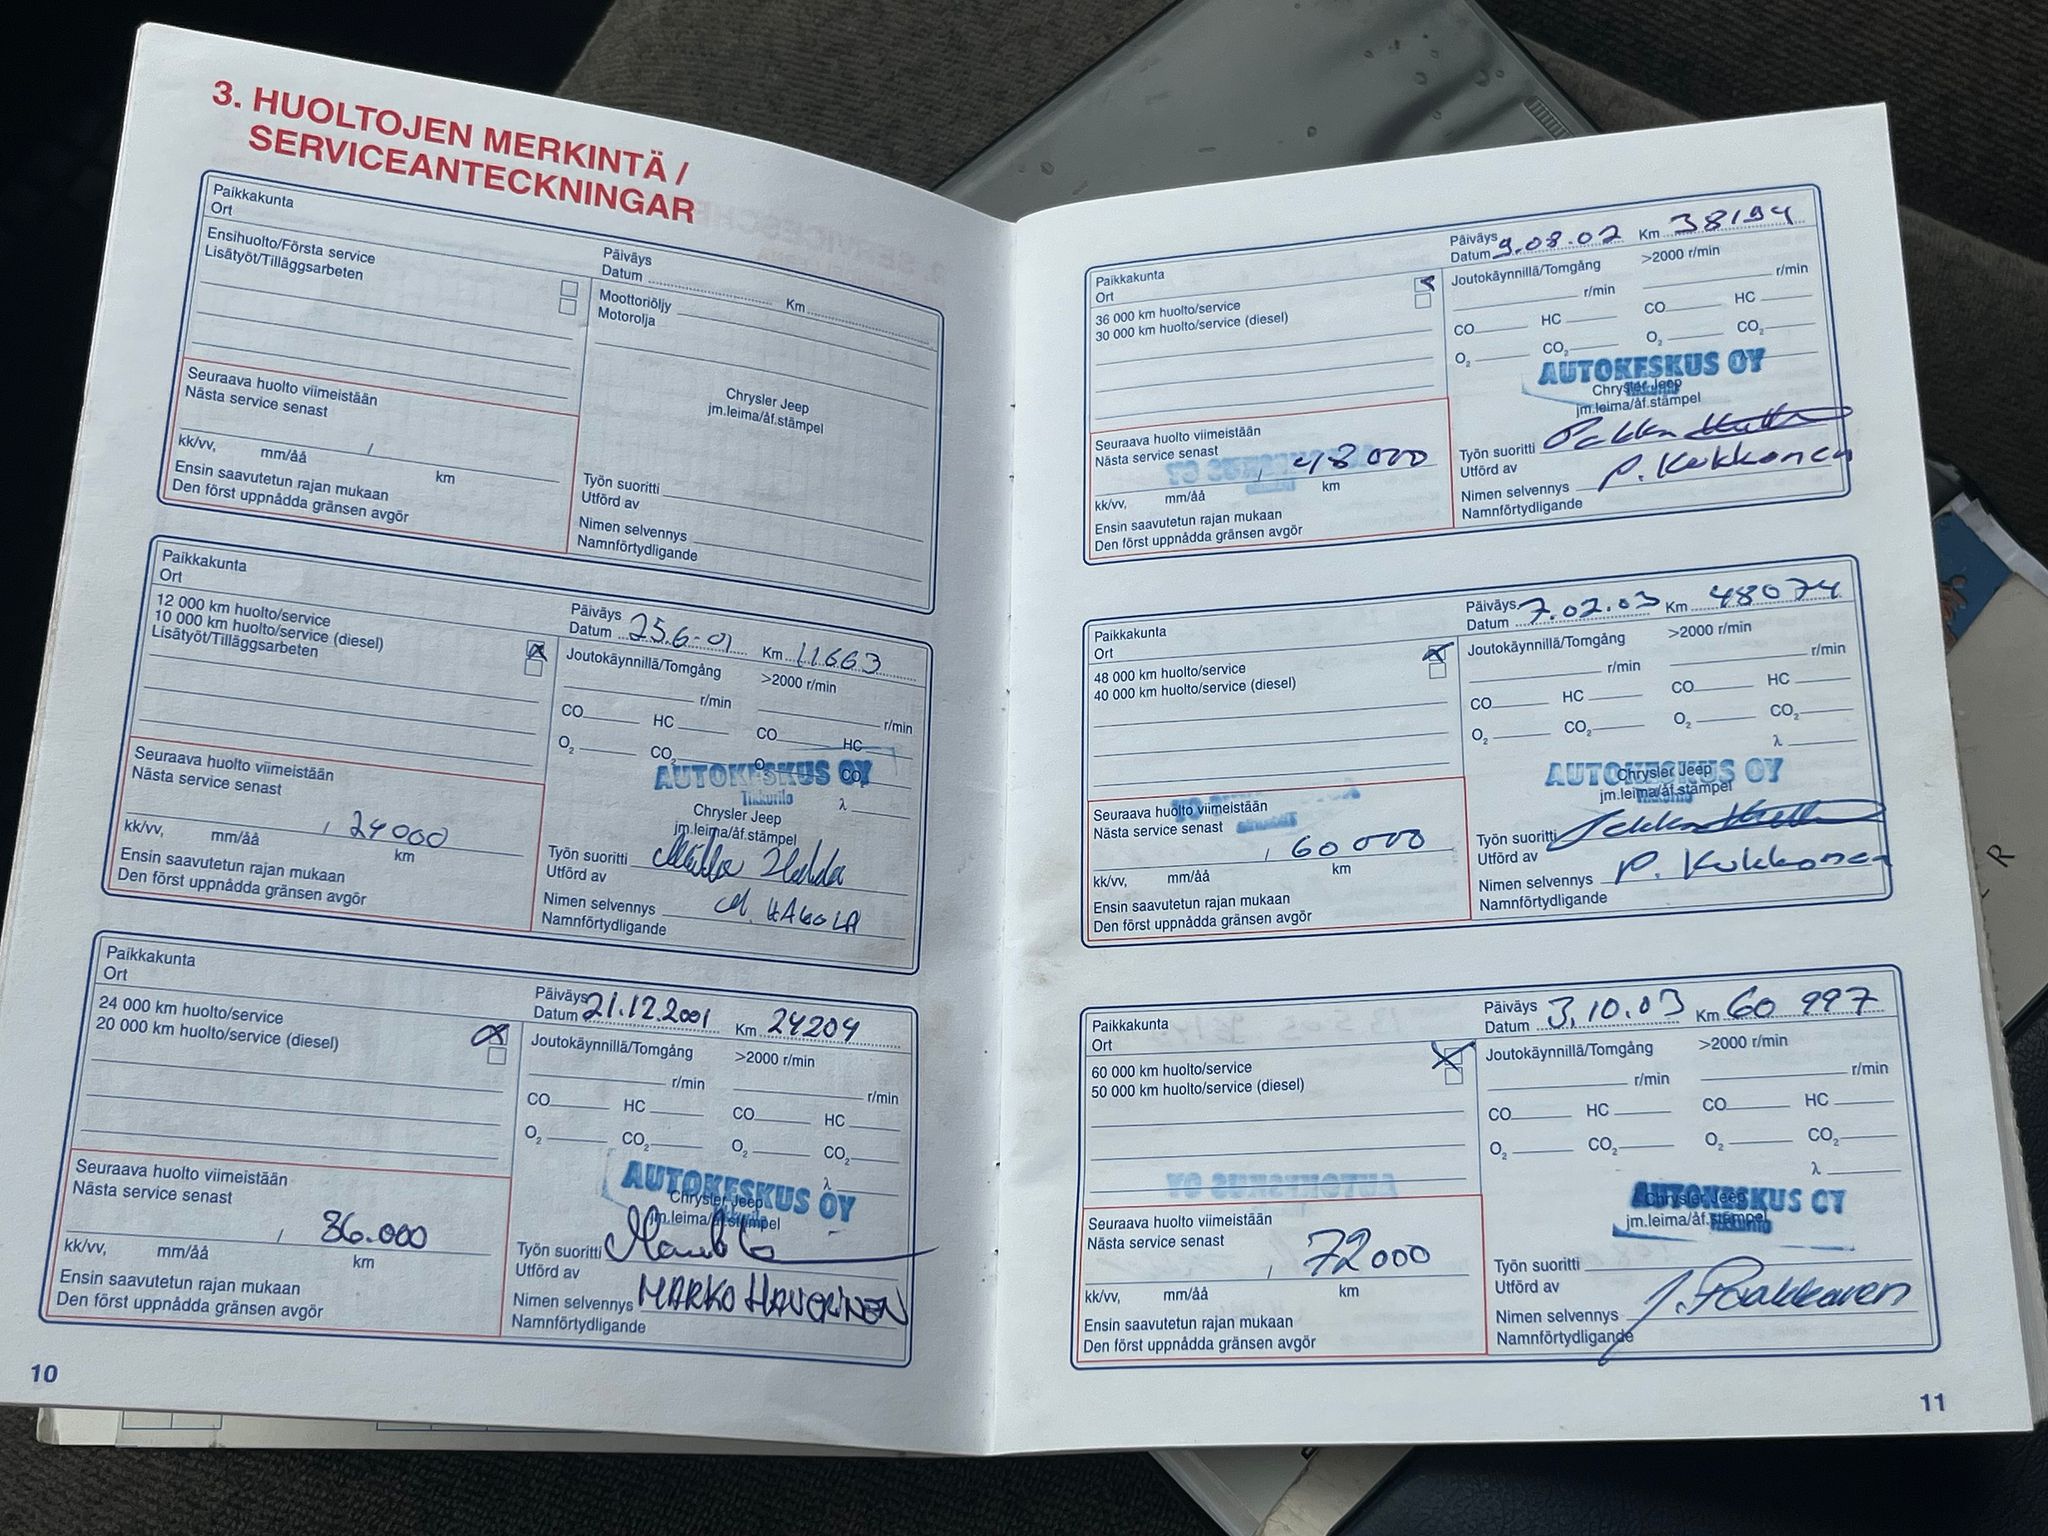 3. HUOLTOJEN MERKINTÄ /
SERVICEANTECKNINGAR
Paikkakunta
Ort
Ensihuolto/Första service
Lisätyöt/Tilläggsarbeten
Päiväys
Datum Km
Moottoriöljy
Motorolja
Seuraava huolto viimeistään
Nästa service senast
/
kk/vv, mm/åå km
Ensin saavutetun rajan mukaan
Den först uppnådda gränsen avgör
Chrysler Jeep
jm.leima/åf.stämpel
Työn suoritti
Utförd av
Nimen selvennys
Namnförtydligande
Paikkakunta
Ort
12 000 km huolto/service
10 000 km huolto/service (diesel)
Lisätyöt/Tilläggsarbeten
Päiväys
Datum 25.6-01 Km 11663
Joutokäynnillä/Tomgång >2000 r/min
r/min r/min
CO HC CO HC
O2 CO2 O2 CO2
λ
AUTOKESKUS OY
Tikkurila
Chrysler Jeep
jm.leima/åf.stämpel
Seuraava huolto viimeistään
Nästa service senast
/ 24000
kk/vv, mm/åå km
Ensin saavutetun rajan mukaan
Den först uppnådda gränsen avgör
Työn suoritti
Utförd av
Nimen selvennys
Namnförtydligande
Paikkakunta
Ort
24 000 km huolto/service
20 000 km huolto/service (diesel)
Päiväys
Datum 21.12.2001 Km 24204
Joutokäynnillä/Tomgång >2000 r/min
r/min r/min
CO HC CO HC
O2 CO2 O2 CO2
λ
AUTOKESKUS OY
Chrysler Jeep
jm.leima/åf.stämpel
Seuraava huolto viimeistään
Nästa service senast
/ 36.000
kk/vv, mm/åå km
Ensin saavutetun rajan mukaan
Den först uppnådda gränsen avgör
Työn suoritti
Utförd av
Nimen selvennys MARKO HAVERINEN
Namnförtydligande
10
Paikkakunta
Ort
36 000 km huolto/service
30 000 km huolto/service (diesel)
Päiväys
Datum 9.08.02 Km 38194
Joutokäynnillä/Tomgång >2000 r/min
r/min r/min
CO HC CO HC
O2 CO2 O2 CO2
AUTOKESKUS OY
Chrysler Jeep
jm.leima/åf.stämpel
Seuraava huolto viimeistään
Nästa service senast
/ 48000
kk/vv, mm/åå km
Ensin saavutetun rajan mukaan
Den först uppnådda gränsen avgör
Työn suoritti
Utförd av
Nimen selvennys P. Kukkonen
Namnförtydligande
Paikkakunta
Ort
48 000 km huolto/service
40 000 km huolto/service (diesel)
Päiväys
Datum 7.02.03 Km 48074
Joutokäynnillä/Tomgång >2000 r/min
r/min r/min
CO HC CO HC
O2 CO2 O2 CO2
λ
AUTOKESKUS OY
Chrysler Jeep
jm.leima/åf.stämpel
Seuraava huolto viimeistään
Nästa service senast
/ 60000
kk/vv, mm/åå km
Ensin saavutetun rajan mukaan
Den först uppnådda gränsen avgör
Työn suoritti
Utförd av
Nimen selvennys P. Kukkonen
Namnförtydligande
Paikkakunta
Ort
60 000 km huolto/service
50 000 km huolto/service (diesel)
Päiväys
Datum 3.10.03 Km 60 997
Joutokäynnillä/Tomgång >2000 r/min
r/min r/min
CO HC CO HC
O2 CO2 O2 CO2
λ
AUTOKESKUS OY
Chrysler Jeep
jm.leima/åf.stämpel
Seuraava huolto viimeistään
Nästa service senast
/ 72000
kk/vv, mm/åå km
Ensin saavutetun rajan mukaan
Den först uppnådda gränsen avgör
Työn suoritti
Utförd av
Nimen selvennys
Namnförtydligande
11